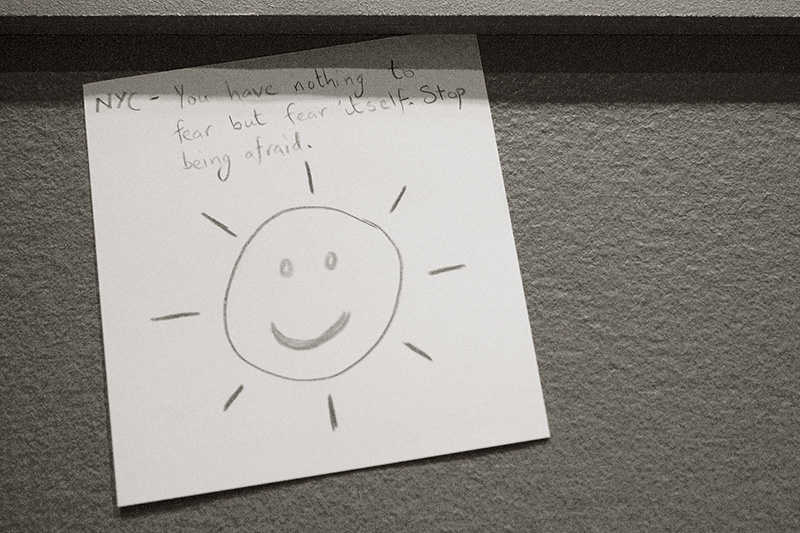 NYC - You have nothing to
fear but fear itself. Stop
being afraid.